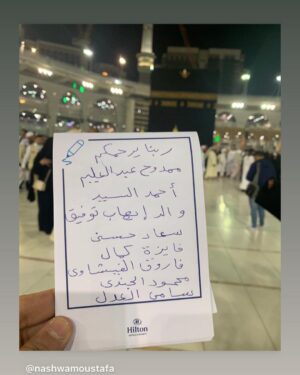 ربنا يرحمكم
ممدوح عبد العليم
أحمد السيد
والد إيهاب توفيق
سعاد حسني
فايزة كمال
فاروق الفيشاوى
محمود الجندى
سامى العدل
Hilton
@nashwamoustafa